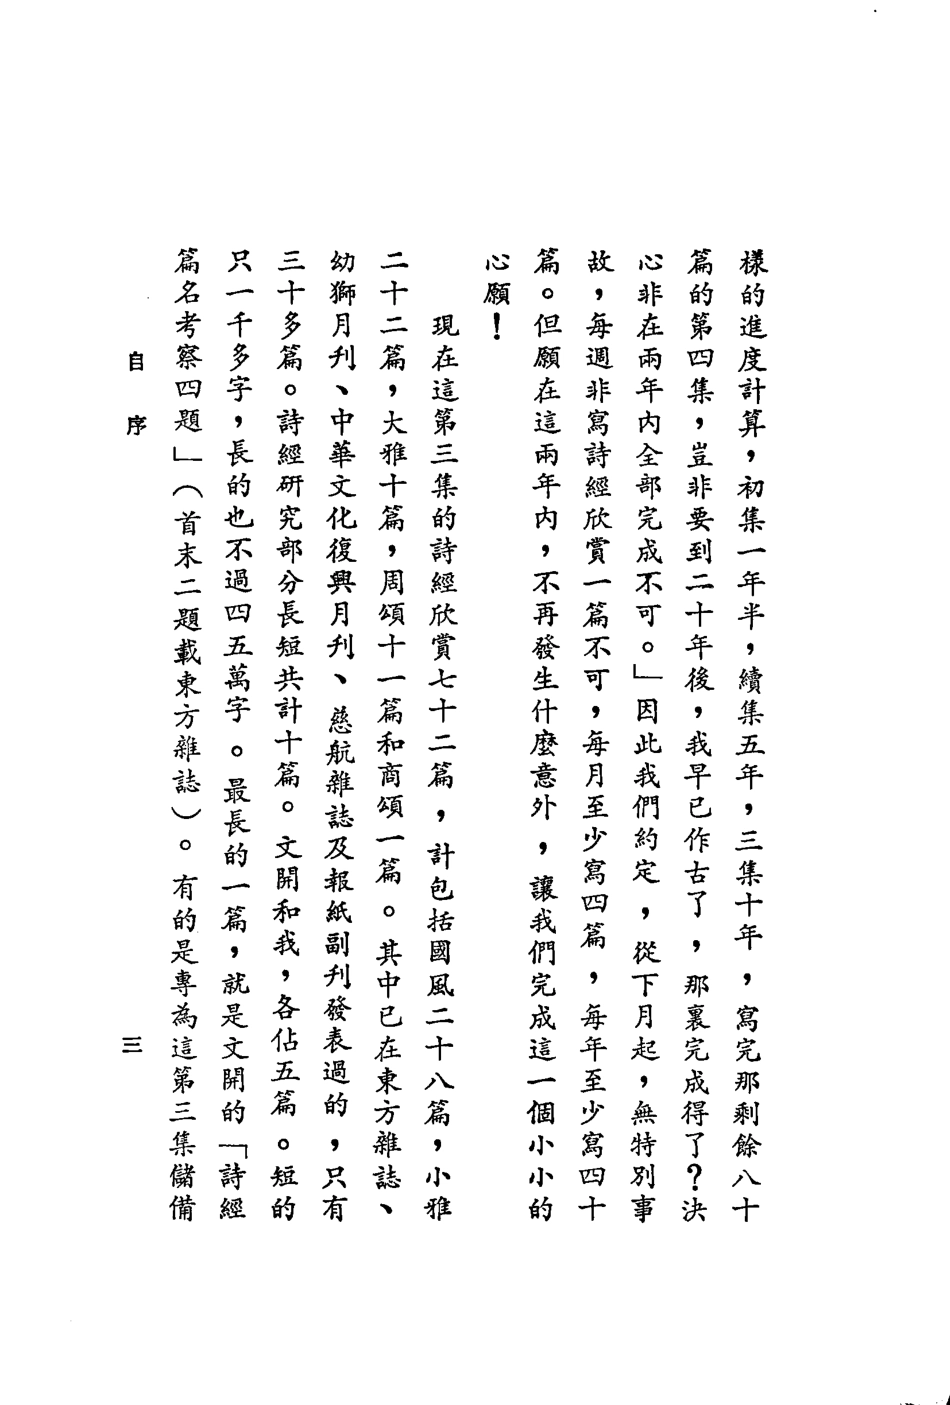 樣的進度計算，初集一年半，續集五年，三集十年，寫完那剩餘八十
篇的第四集，豈非要到二十年後，我早已作古了，那裏完成得了？決
心非在兩年內全部完成不可。」因此我們約定，從下月起，無特別事
故，每週非寫詩經欣賞一篇不可，每月至少寫四篇，每年至少寫四十
篇。但願在這兩年內，不再發生什麼意外，讓我們完成這一個小小的
心願！
現在這第三集的詩經欣賞七十二篇，計包括國風二十八篇，小雅
二十二篇，大雅十篇，周頌十一篇和商頌一篇。其中已在東方雜誌、
幼獅月刋、中華文化復興月刋、慈航雜誌及報紙副刋發表過的，只有
三十多篇。詩經研究部分長短共計十篇。文開和我，各佔五篇。短的
只一千多字，長的也不過四五萬字。最長的一篇，就是文開的「詩經
篇名考察四題」（首末二題載東方雜誌）。有的是專為這第三集儲備
自序
三